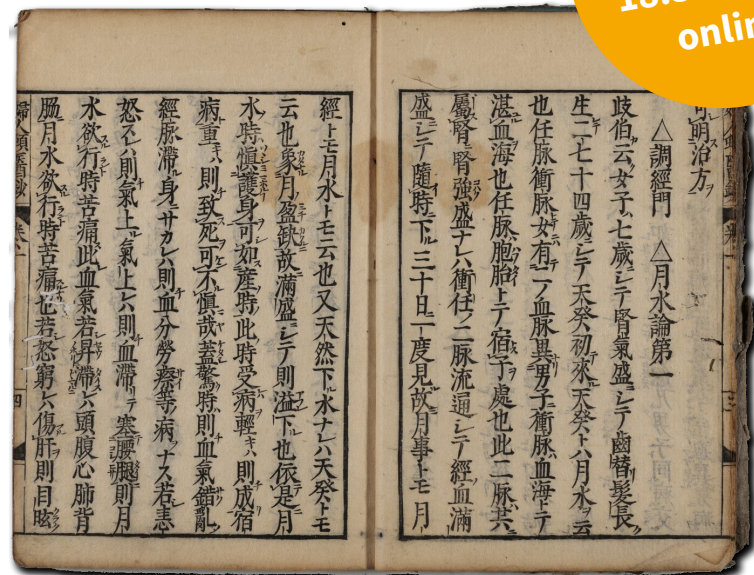 onlin
明治方
△調經門 △月水論第一
歧伯云女子ハ七歳ニシテ腎氣盛ニシテ齒替髮長
生二七十四歳ニシテ天癸初來天癸トハ月水ヲ云
也任脉衝脉女有二ツノ血脉異男子衝脉ハ血海トテ
湛血海也任脉ハ胞胎トテ宿子處也此二脉共
屬腎腎強盛ナレハ衝任ノ二脉流通シテ經血滿
盛シテ隨時下ル三十日一度見故月事トモ月
經トモ月水トモ云也又天然下ル水ナレハ天癸トモ
云也象月盈缺故滿盛シテ則溢下也依是月
水時慎護身可如産時此時受病輕キハ則成宿
病重キハ則致死可不慎哉蓋驚時則血氣錯亂
經脉滯身サカレハ則血分勞瘵等ノ病ヲナス若恚
怒スレハ則氣上ル氣上レハ則血滯塞腰腿則月
水欲行時苦痛此血氣若昇滯レハ頭腹心肺背
脇月水欲行時苦痛也若怒窮レハ傷肝則目眩
四